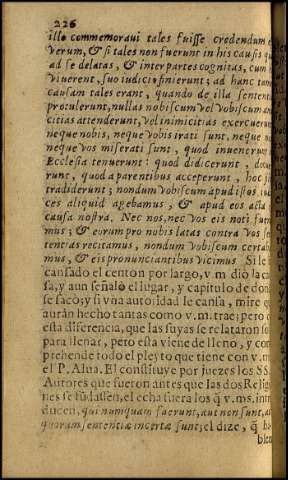 226
illo commemoraui tales fuisse credendum e
verum, & si tales non fuerunt in his causis qu
ad se delatas, & interpartes cognitas, cum
viuerent, suo iudicio finierunt; ad hanc tam
causam tales erant, quando de illa sententi
protulerunt, nullas nobiscum vel vobiscum am
citias attenderunt, vel inimicitias exercuerun
neque nobis, neque vobis irati sunt, neque no
neque vos miserati sunt, quod inuenerunt
Ecclesia tenuerunt: quod didicerunt, docue
runt, quod a parentibus acceperunt, hoc fi
tradiderunt; nondum vobiscum apud istos iudi
ces aliquid agebamus, & apud eos acta e
causa nostra. Nec nos, nec vos eis noti fuera
mus; & eorum pro nobis latas contra vos sen
tencias recitamus, nondum vobiscum certaba
mus, & eis pronunciantibus vicimus Si le h
cansado el centon por largo, v.m dió la cau
sa, y aun señaló el lugar, y capitulo de dond
se sacó; y si vna autoridad le cansa, mire qu
auràn hecho tantas como v.m. trae; pero c
esta diferencia, que las suyas se relataron so
para llenar, pero esta viene de lleno, y com
prehende todo el pleyto que tiene con v.m
el P. Alua. El constituye por juezes los SS.
Autores que fueron antes que las dos Religi
nes se fudassen, el echa fuera los q̃ v.ms. intro
ducen, qui numquam fuerunt, aut non sunt, a
quorum sententiæ incertæ sunt; el dize, q̃ ha
bien